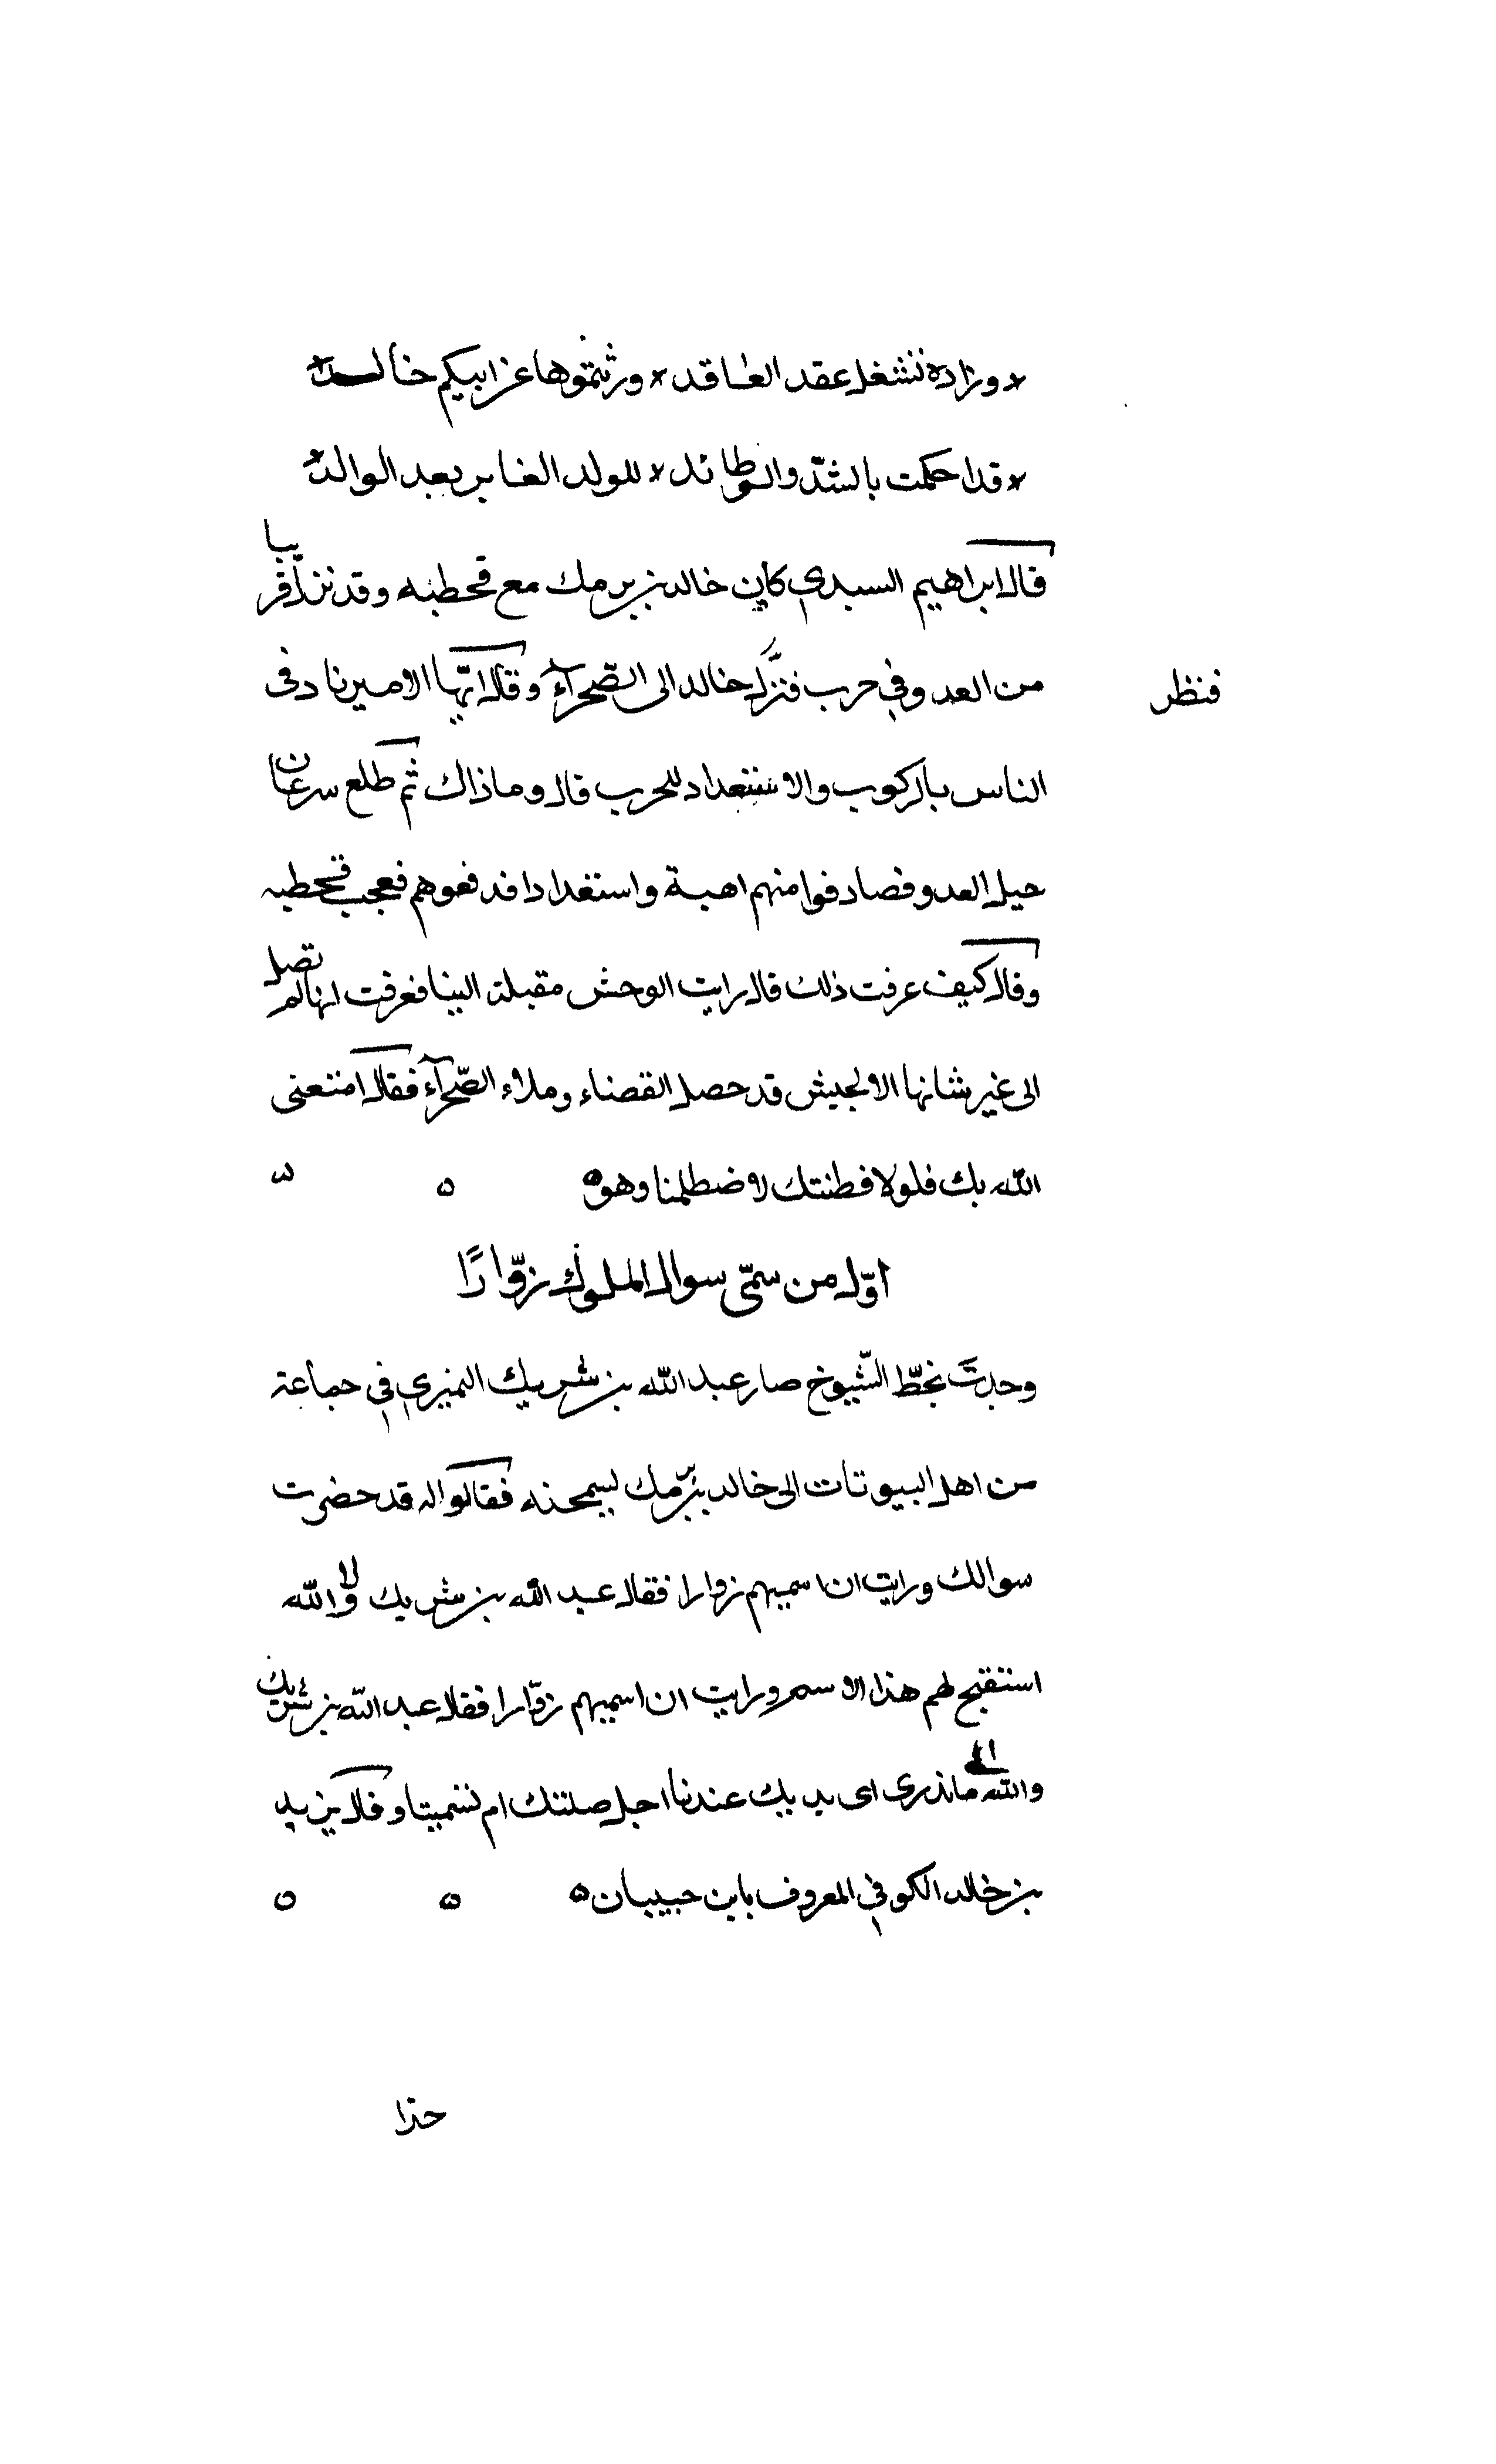 * وزاده تشغل عقد العاقد * ورثتموها عن ابيكم خالد *
* قد احكمت بالشد والوطائد * للولد الغابر بعد الوالد *
قال ابراهيم السيدي كان خالد بن برمك مع قحطبه وقد نزل قريبا
من العدو في حرب فنزل خالد الى الصّحراء وقال ايّها الامير ناد في
فنظر
الناس بالركوب والاستعداد للحرب قال وما ذاك ثم طلع سرعان
خيل العدو فصادفوا منهم اهبة واستعدادا فدفعوهم فعجب قحطبه
وقال كيف عرفت ذلك قال رايت الوحش مقبلة الينا فعرفت انها لم تصل
الى غير شانها الا لجيش قد حصل القضاء وملاء الصّحراء فقال امتعنى
الله بك فلولا فطنتك لاضطلمنا وهو ه
اوّل من سمّى سوال الملوك زوّارًا
وجدت بخطّ الشّيوخ صار عبد الله بن شريك النميري في جماعة
من اهل البيوتات الى خالد بن برمك ليسمحنه فقالوا له قد حضرت
سوالك ورايت ان اسميهم زوارا فقال عبد الله بن شريك لا والله
استقبح لهم هذا الاسم ورايت ان اسميهم زوّارا فقال عبد الله بن شريك
والله ماندرى اى يديك عندنا اجل صلتك ام تسميتنا وقال يزيد
بن خالد الكوفي المعروف بابن حبيبان ه
حذا